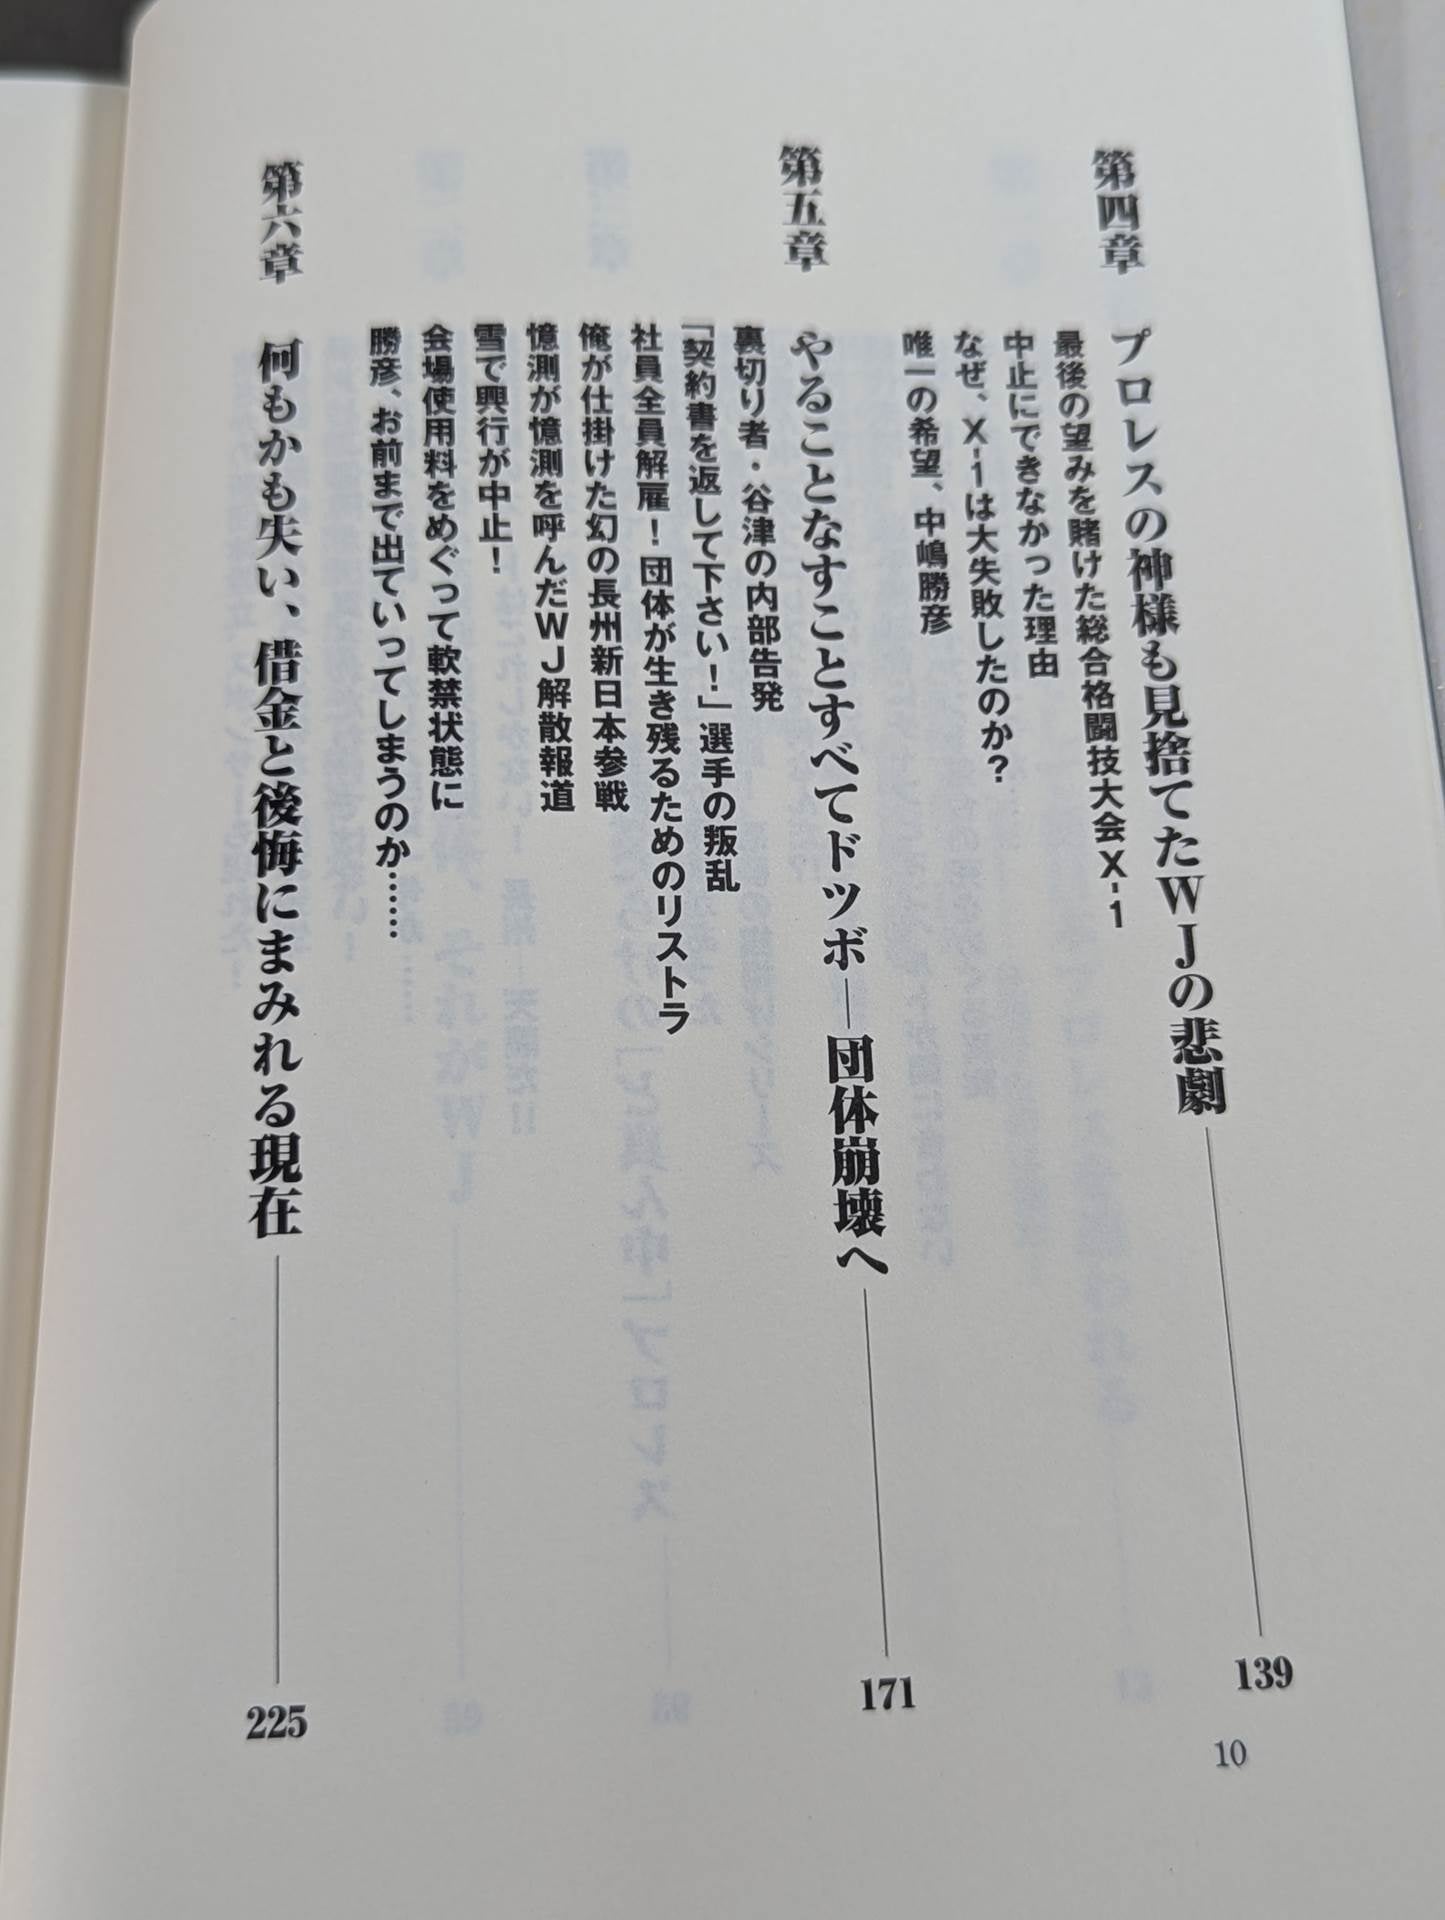 第四章　プロレスの神様も見捨てたWJの悲劇　139
最後の望みを賭けた総合格闘技大会X-1
中止にできなかった理由
なぜ、X-1は大失敗したのか？
唯一の希望、中嶋勝彦
第五章　やることなすことすべてドツボ―団体崩壊へ　171
裏切り者・谷津の内部告発
「契約書を返して下さい！」選手の叛乱
社員全員解雇！団体が生き残るためのリストラ
俺が仕掛けた幻の長州新日本参戦
憶測が憶測を呼んだWJ解散報道
雪で興行が中止！
会場使用料をめぐって軟禁状態に
勝彦、お前まで出ていってしまうのか……
第六章　何もかも失い、借金と後悔にまみれる現在　225
10